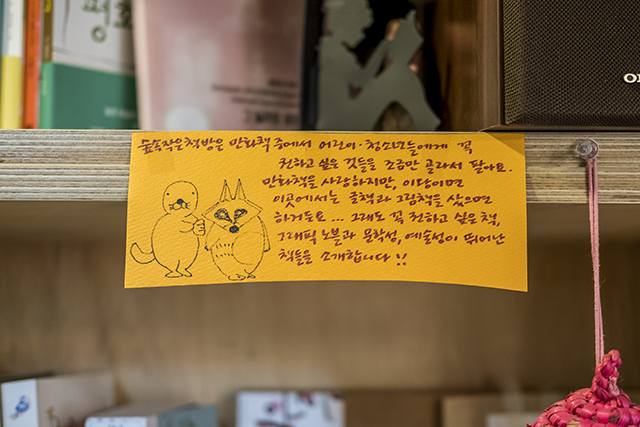 평화
숲속작은책방은 만화책 중에서 어린이·청소년들에게 꼭
전하고 싶은 것들을 조금만 골라서 팔아요.
만화책을 사랑하지만, 이왕이면
이곳에서는 글책과 그림책을 샀으면
하거든요... 그래도 꼭 전하고 싶은 책,
그래픽 노블과 문학성, 예술성이 뛰어난
책들을 소개합니다!!